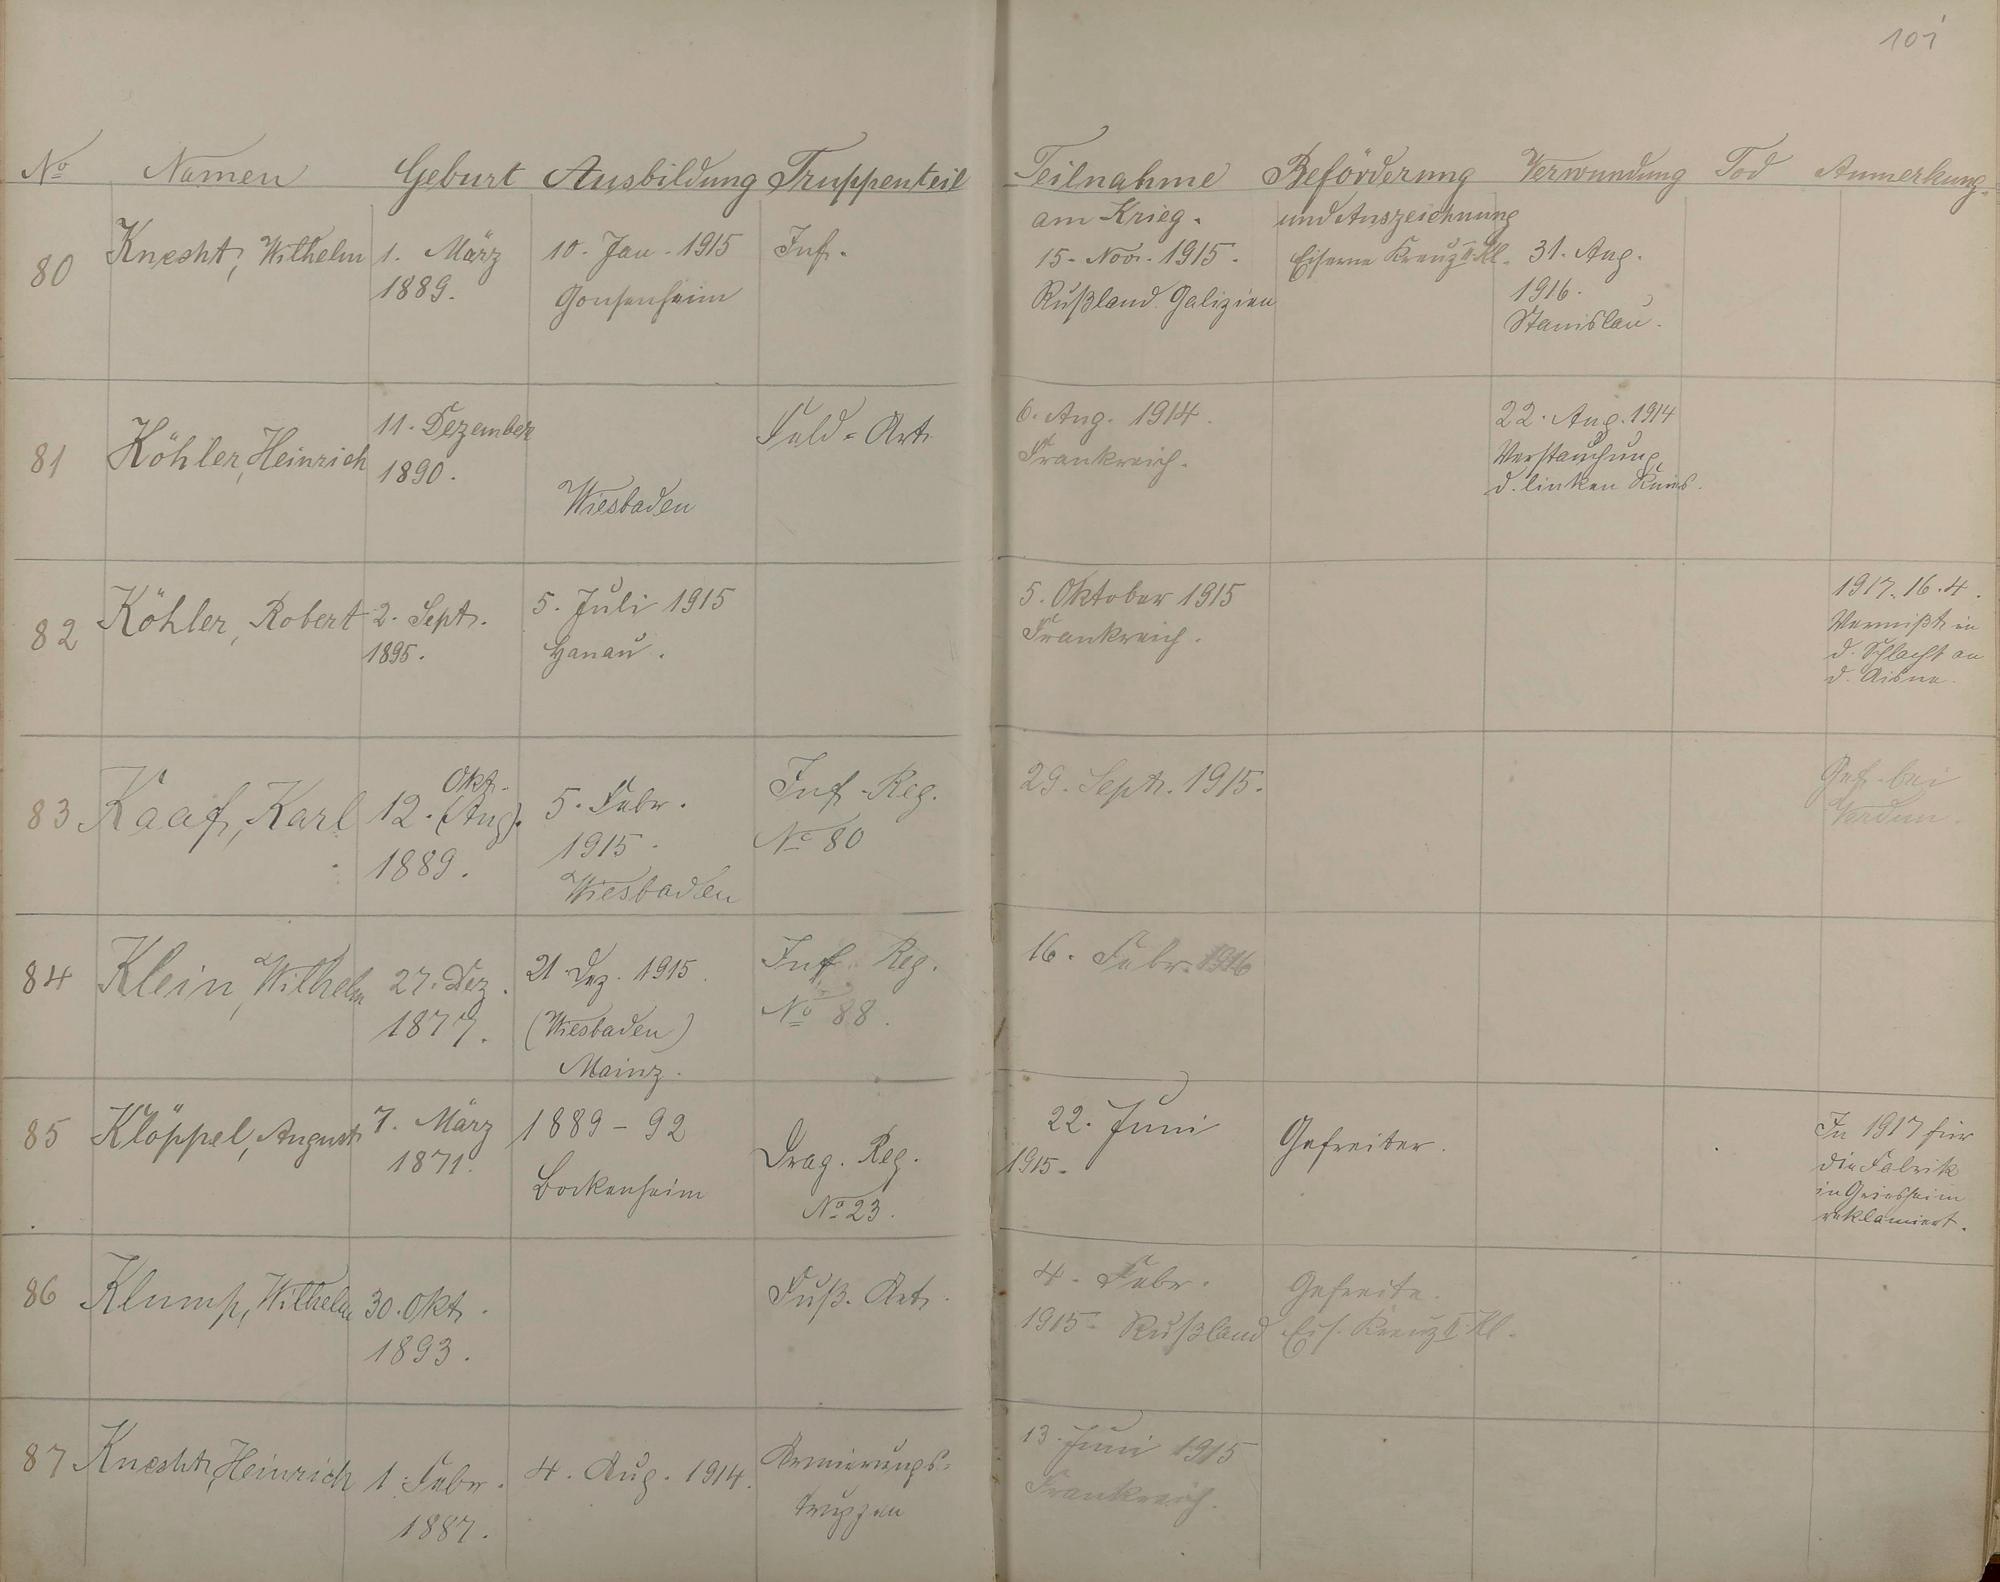 101
No Namen Geburt Ausbildung Truppenteil Teilnahme Beförderung Verwundung Tod Anmerkung.
am Krieg. und Auszeichnung
80 Knecht, Wilhelm 1. März 10. Jan. 1915 Inf. 15. Nov. 1915. Eiserne Kreuz II. Kl. 31. Aug.
1889. Gonsenheim Rußland Galizien 1916.
Stanislau.
81 Köhler, Heinrich 11. Dezember Feld-Art. 6. Aug. 1914. 22. Aug. 1914
1890. Wiesbaden Frankreich. Verstauchung
d. linken Knies.
82 Köhler, Robert 2. Sept. 5. Juli 1915 5. Oktober 1915 1917. 16.4.
1895. Hanau. Frankreich. Vermißt in
d. Schlacht an
d. Aisne.
83 Kaaf, Karl 12. Okt. (Aug). 5. Febr. Inf.-Reg. 29. Sept. 1915. Gef. bei
1889. 1915. No 80 Verdun.
Wiesbaden
84 Klein, Wilhelm 27. Dez. 21. Dez. 1915. Inf. Reg. 16. Febr. 1916
1877. (Wiesbaden) No 88.
Mainz.
85 Klöppel, August 7. März 1889-92 Drag. Reg. 22. Juni Gefreiter. In 1917 für
1871. Bockenheim No 23. 1915. die Fabrik
in Griesheim
reklamiert.
86 Klump, Wilhelm 30. Okt. Fuß. Art. 4. Febr. Gefreite.
1893. 1915. Rußland Eis. Kreuz II. Kl.
87 Knecht, Heinrich 1. Febr. 4. Aug. 1914. Armierungs- 13. Juni 1915
1887. truppen Frankreich.